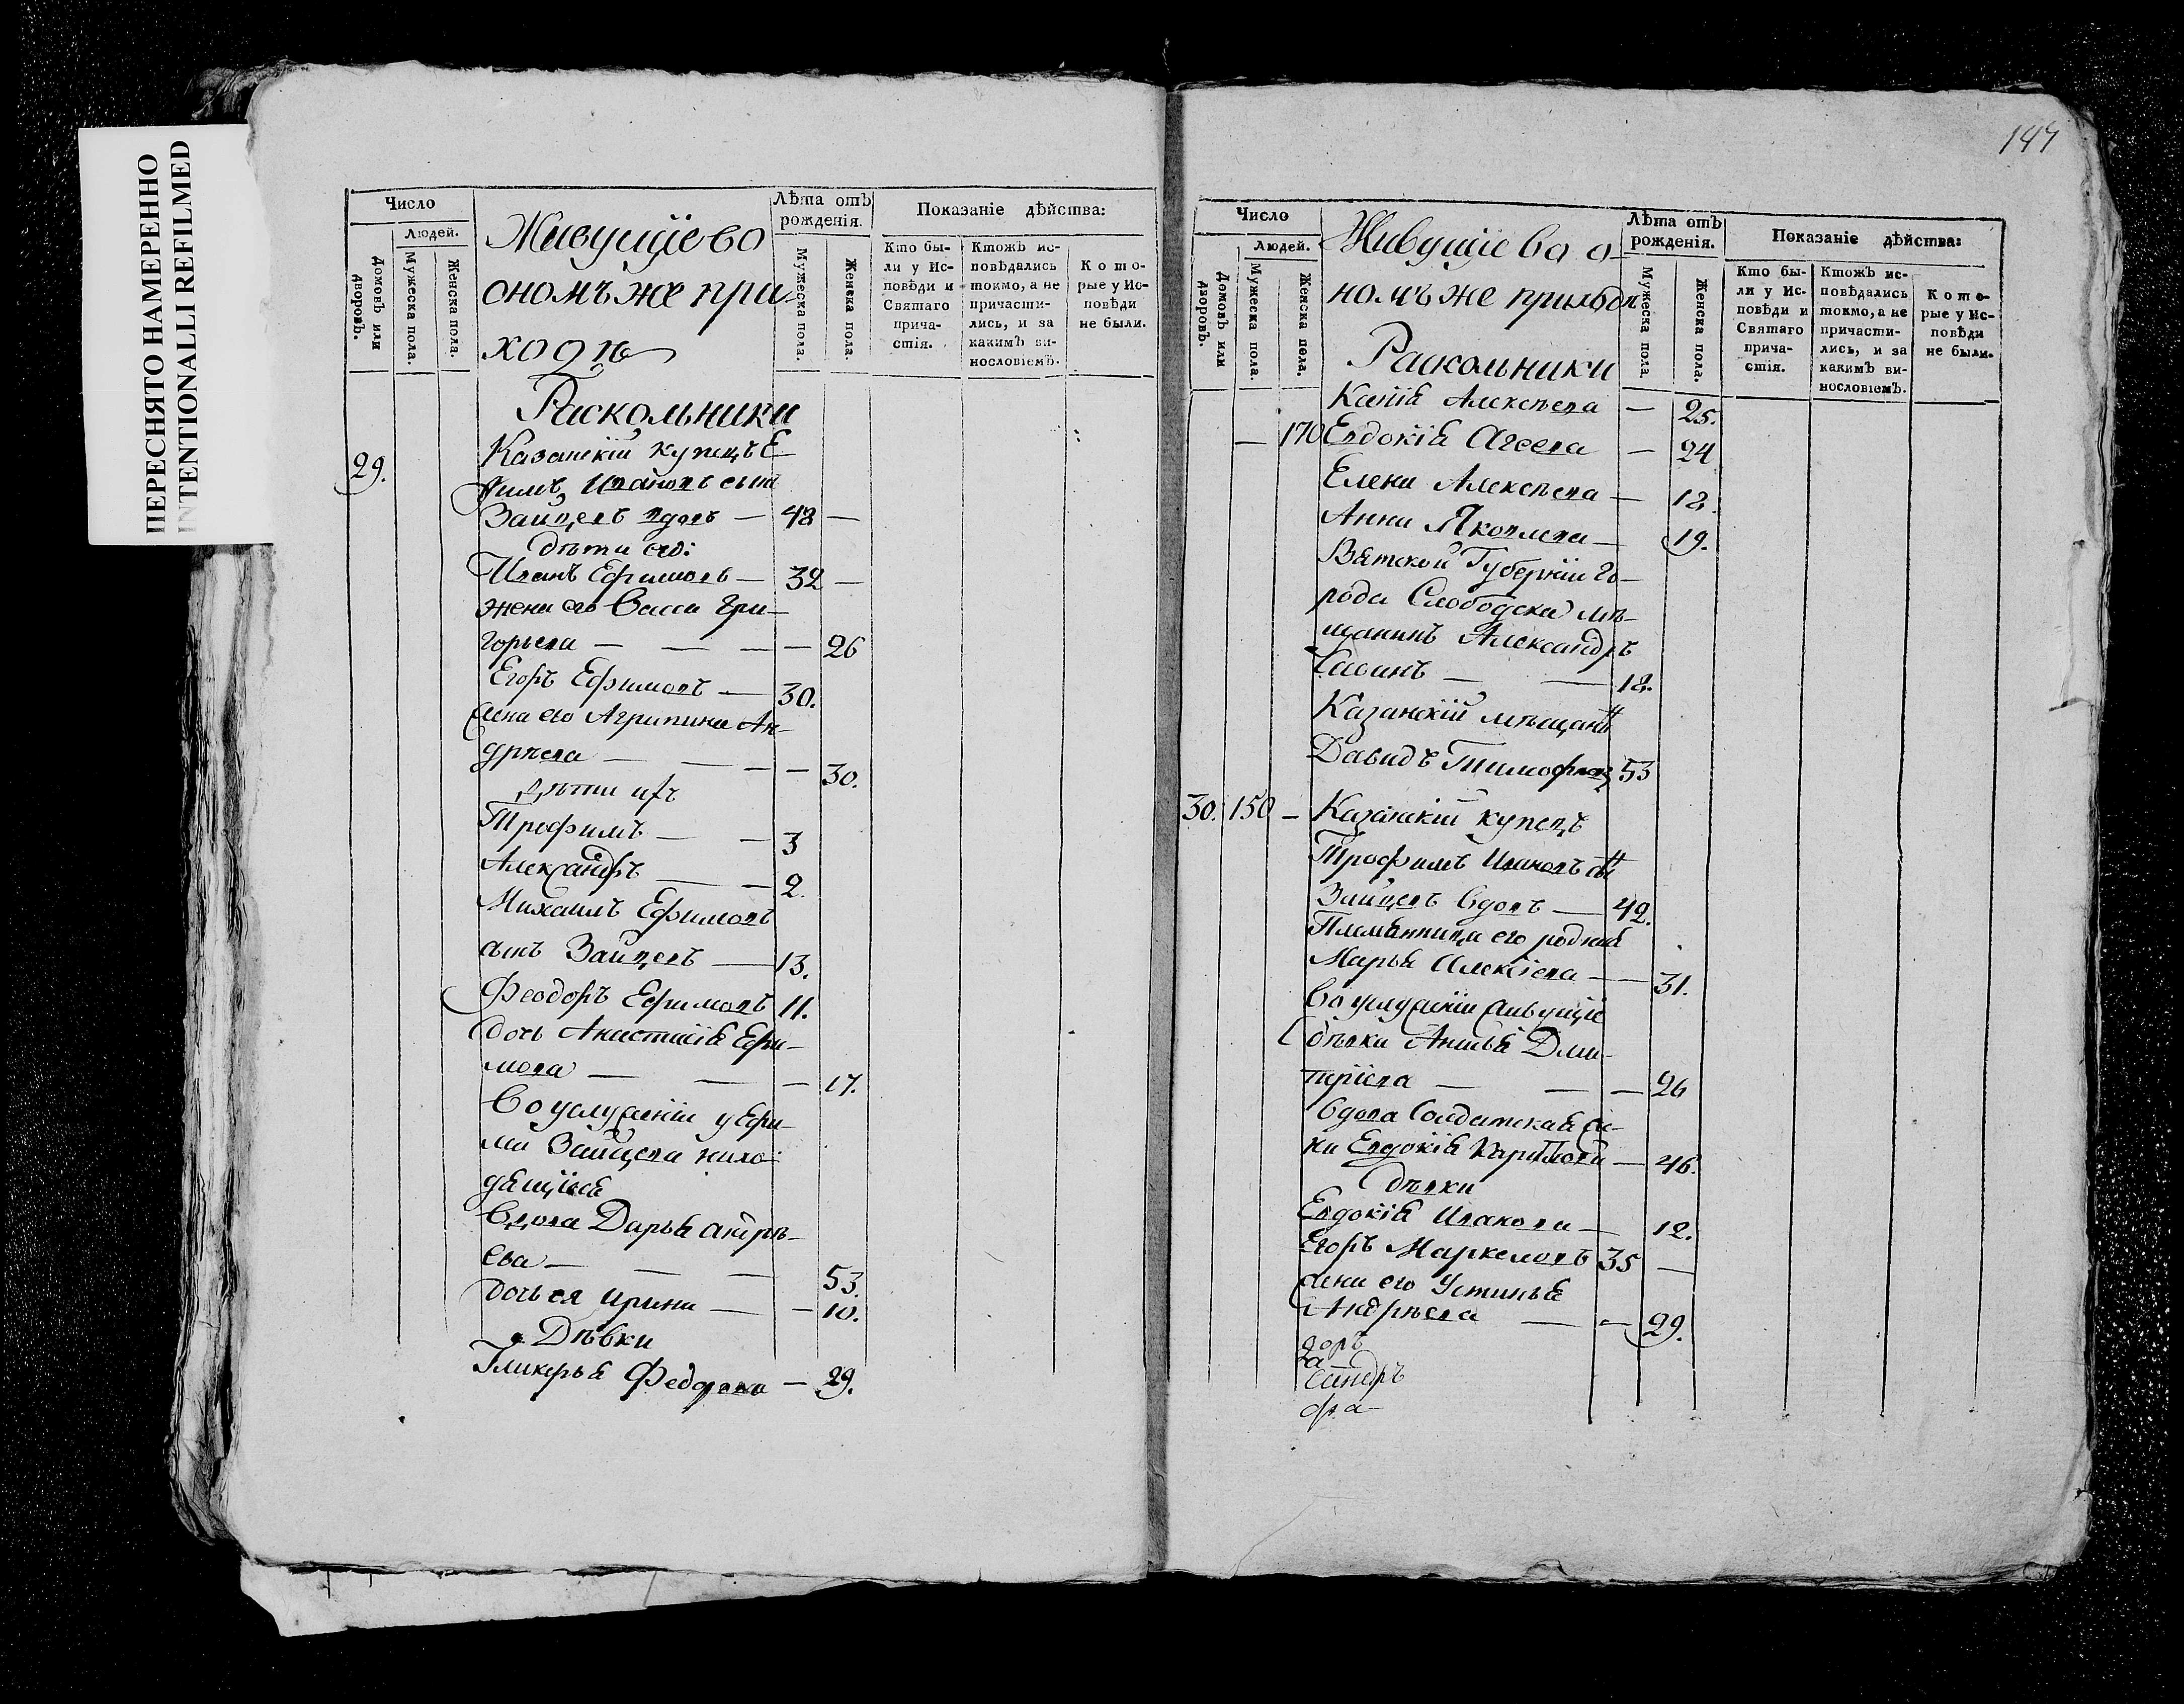 ПЕРЕСНЯТО НАМЕРЕННО
INTENTIONALLI REFILMED
Число
Людей.
Домовъ или дворовъ.
Мужеска пола.
Женска пола.
Живущіе во
ономъ же при-
ходѣ
Лѣта отъ рожденія.
Мужеска пола.
Женска пола.
Показаніе дѣйства:
Кто бы-
ли у Ис-
повѣди и
Святаго
прича-
стія.
Ктожъ ис-
повѣдались
токмо, а не
причасти-
лись, и за
какимъ ви-
нословіемъ.
Кото-
рые у Ис-
повѣди
не были.
Раскольники
29. Казанскій купецъ Е-
фимъ Ивановъ сынъ
Зайцевъ вдовъ — 48 —
дѣти его:
Иванъ Ефимовъ — 32 —
жена его Васса Гри-
горьева — — — — 26
Егоръ Ефимовъ — 30.
жена его Агрипина Ан-
дрѣева — — — — 30.
дѣти ихъ
Трофимъ — — 3
Александръ — — 2.
Михаилъ Ефимовъ
сынъ Зайцевъ — 13.
Феодоръ Ефимовъ 11.
дочь Анастасія Ефи-
мова — — — 17.
Во услуженіи у Ефи-
ма Зайцева нахо-
дящіися
Вдова Дарья Андрѣ-
ева — — — 53.
дочь ея Ирина — — 10.
Дѣвки
Гликерья Федорова — 29.
144
Число
Людей.
Домовъ или дворовъ.
Мужеска пола.
Женска пола.
Живущіе во о-
номъ же приходѣ
Лѣта отъ рожденія.
Мужеска пола.
Женска пола.
Показаніе дѣйства:
Кто бы-
ли у Ис-
повѣди и
Святаго
прича-
стія.
Ктожъ ис-
повѣдались
токмо, а не
причасти-
лись, и за
какимъ ви-
нословіемъ.
Кото-
рые у Ис-
повѣди
не были.
Раскольники
Алексѣева — 25.
— 170 Евдокія — 24
Елена Алексѣева — 18.
Анна Яковлева — 19.
Вятской Губерніи го-
рода Слободска мѣ-
щанинъ Александръ
Савинъ — — 18.
Казанскій мѣщанинъ
Давидъ Тимофѣевъ 53
30. 150 — Казанскій купецъ
Трофимъ Ивановъ сынъ
Зайцевъ вдовъ — 42.
Племянница его родная
Марья Алексіева — — 31.
Во услуженіи живущіе
дѣвки Анисья Дми-
тріева — — — 26
Вдова Солдатская же-
на Евдокія — 46.
Дѣвки
Евдокія Иванова — 12.
Егоръ Маркеловъ 35 —
жена его Устинья
Андрѣева — — 29.